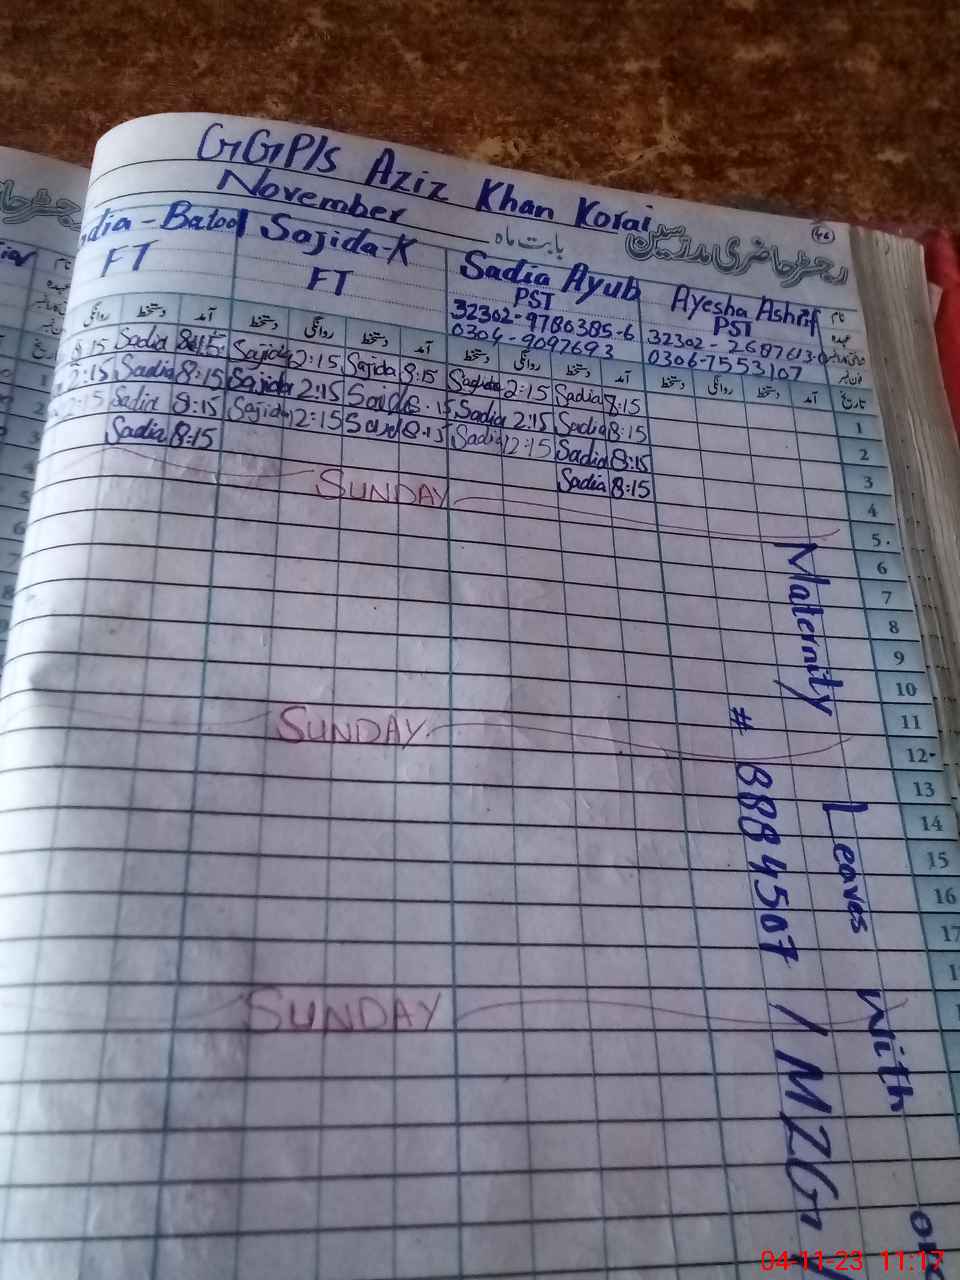 GGP/s Aziz Khan Korai
November
46
رجسٹر حاضری مدرسین
بابت ماہ
Batool Sajida-K Sadia Ayub Ayesha Ashrf
FT FT PST PST
32302-9786385-6 32302-2687613-0
0304-9097693 0306-7553107
روانگی دستخط آمد دستخط روانگی دستخط آمد دستخط روانگی دستخط آمد دستخط روانگی دستخط آمد تاریخ
8:15 Sadia 8:15 Sajida 2:15 Sajida 8:15 2:15 Sadia 8:15 1
2:15 Sadia 8:15 Sajida 2:15 8:15 Sadia 2:15 Sadia 8:15 2
2:15 Sadia 8:15 Sajida 12:15 8:15 Sadia 12:15 Sadia 8:15 3
Sadia 8:15 Sadia 8:15 4
SUNDAY 5
6
7
8
9
10
11
SUNDAY 12
13
14
15
16
17
SUNDAY
Maternity Leaves with
# 8884507 / MZG
04-11-23 11:17